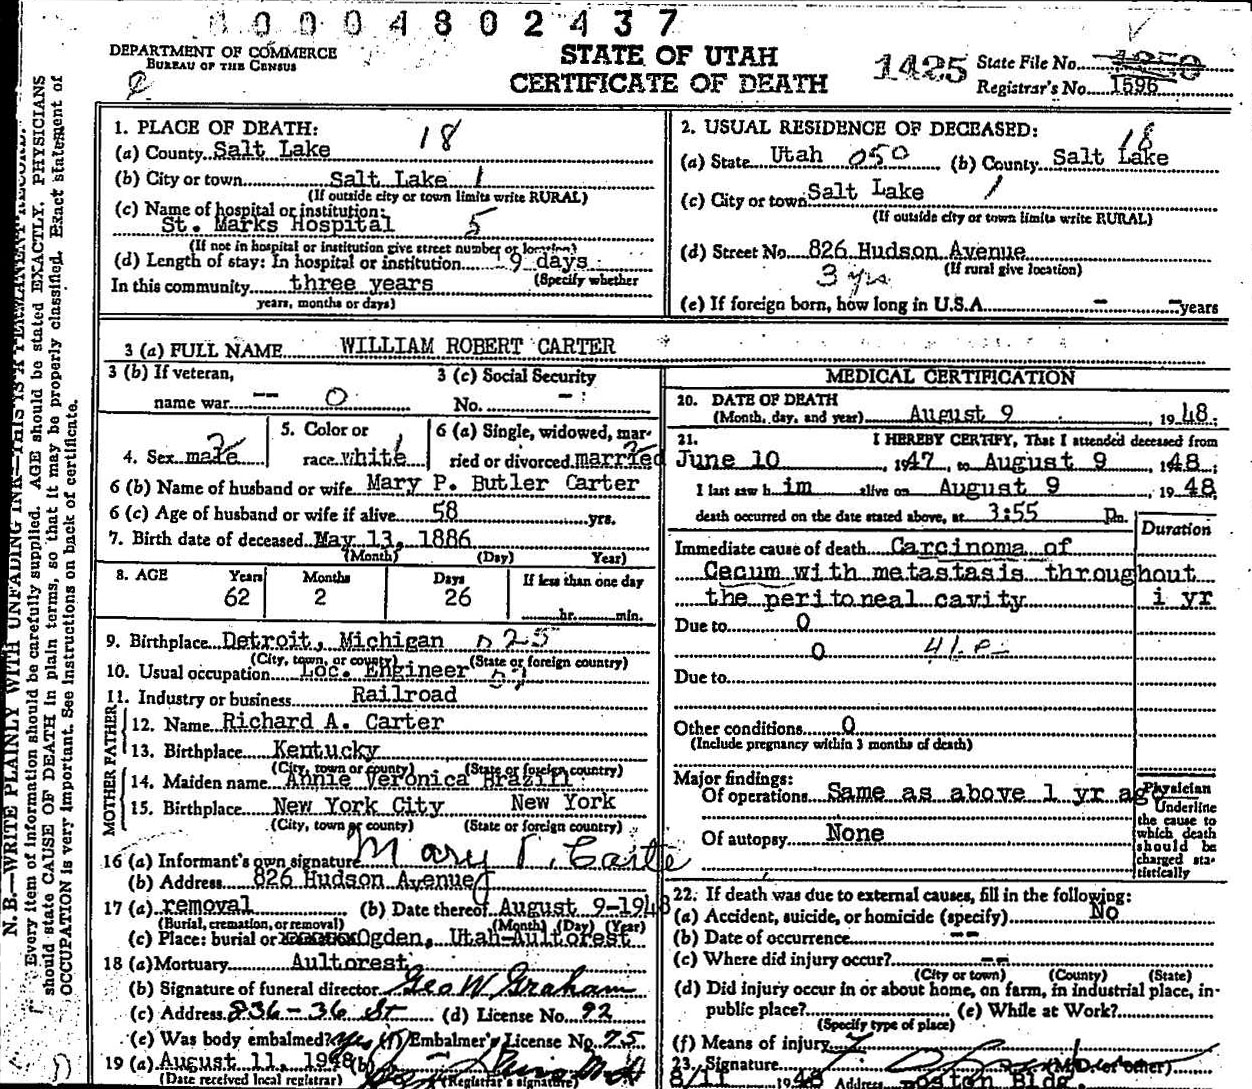 0004802437
DEPARTMENT OF COMMERCE
BUREAU OF THE CENSUS
STATE OF UTAH
CERTIFICATE OF DEATH
1425
State File No.
Registrar's No. 1596
N. B.—WRITE PLAINLY WITH UNFADING INK—THIS IS A PERMANENT RECORD.
Every item of information should be carefully supplied. AGE should be stated EXACTLY. PHYSICIANS
should state CAUSE OF DEATH in plain terms, so that it may be properly classified. Exact statement of
OCCUPATION is very important. See instructions on back of certificate.
1. PLACE OF DEATH: 18
(a) County Salt Lake
(b) City or town Salt Lake 1
(If outside city or town limits write RURAL)
(c) Name of hospital or institution:
St. Marks Hospital 5
(If not in hospital or institution give street number or location)
(d) Length of stay: In hospital or institution 9 days
(Specify whether
In this community three years
years, months or days)
2. USUAL RESIDENCE OF DECEASED: 18
(a) State Utah 050 (b) County Salt Lake
(c) City or town Salt Lake 1
(If outside city or town limits write RURAL)
(d) Street No. 826 Hudson Avenue
3 yrs (If rural give location)
(e) If foreign born, how long in U.S.A. - - years
3 (a) FULL NAME WILLIAM ROBERT CARTER
3 (b) If veteran,
name war -- 0
3 (c) Social Security
No. -
4. Sex male
5. Color or
race white 1
6 (a) Single, widowed, mar-
ried or divorced married
6 (b) Name of husband or wife Mary P. Butler Carter
6 (c) Age of husband or wife if alive 58 yrs.
7. Birth date of deceased May 13, 1886
(Month) (Day) Year)
8. AGE Years Months Days If less than one day
62 2 26 hr. min.
9. Birthplace Detroit, Michigan
(City, town, or county) (State or foreign country)
10. Usual occupation Loc. Engineer
11. Industry or business Railroad
FATHER
12. Name Richard A. Carter
13. Birthplace Kentucky
(City, town or county) (State or foreign country)
MOTHER
14. Maiden name Annie Veronica Brazill
15. Birthplace New York City New York
(City, town or county) (State or foreign country)
16 (a) Informant's own signature Mary P. Carte
(b) Address 826 Hudson Avenue
17 (a) removal (b) Date thereof August 9-1948
(Burial, cremation, or removal) (Month) (Day) (Year)
(c) Place: burial or Ogden, Utah-Aultorest
18 (a) Mortuary Aultorest
(b) Signature of funeral director Geo W Graham
(c) Address 836-36 St (d) License No. 92
(e) Was body embalmed? yes (f) Embalmer's License No. 75
19 (a) August 11, 1948 (b)
(Date received local registrar) (Registrar's signature)
MEDICAL CERTIFICATION
20. DATE OF DEATH
(Month, day, and year) August 9 1948
21. I HEREBY CERTIFY, That I attended deceased from
June 10, 1947, to August 9, 1948;
I last saw him alive on August 9, 1948
death occurred on the date stated above, at 3:55 Pm.
Duration
Immediate cause of death Carcinoma of
Cecum with metastasis throughout
the peritoneal cavity 1 yr
Due to 0
0
Due to
Other conditions 0
(Include pregnancy within 3 months of death)
Major findings:
Of operations Same as above 1 yr ago
Of autopsy None
Physician
Underline
the cause to
which death
should be
charged sta-
tistically
22. If death was due to external causes, fill in the following:
(a) Accident, suicide, or homicide (specify) No
(b) Date of occurrence --
(c) Where did injury occur? --
(City or town) (County) (State)
(d) Did injury occur in or about home, on farm, in industrial place, in-
public place? (e) While at Work?
(Specify type of place)
(f) Means of injury
23. Signature (M.D. or other)
8/11 1948 Address Boston Bldg.